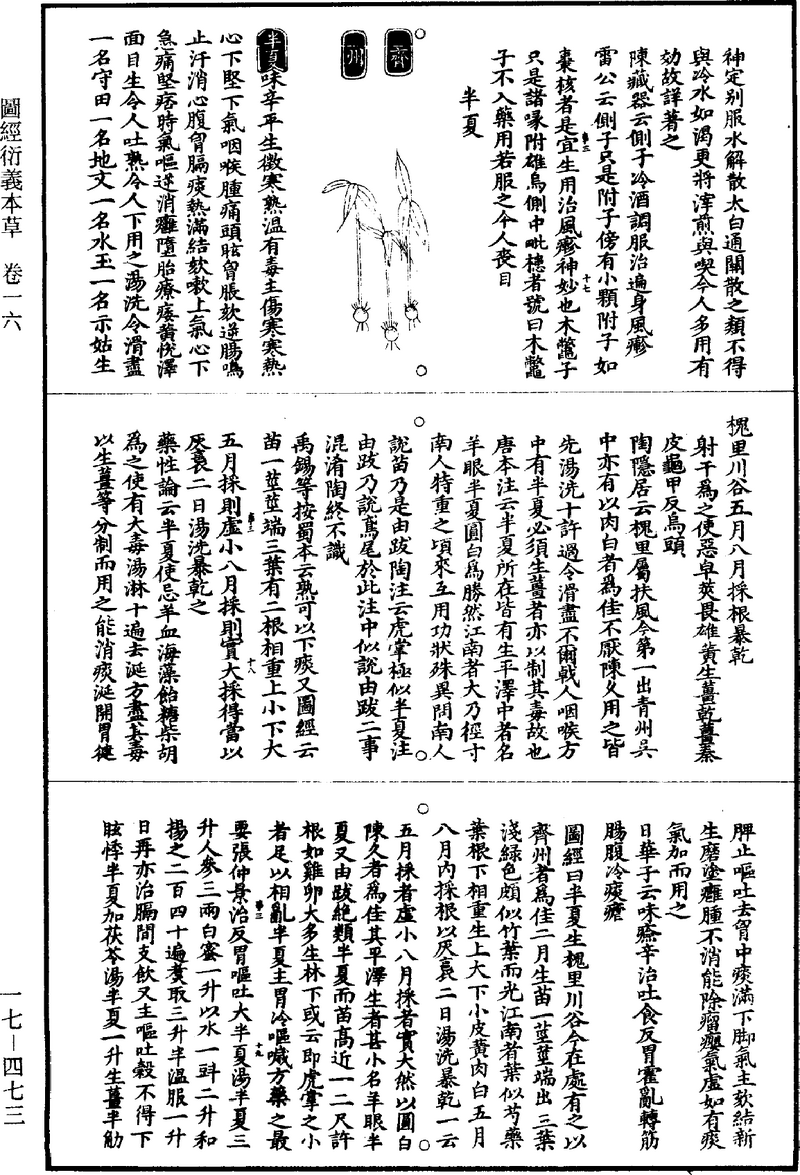 圖經衍義本草　卷一六
神定别服水解散太白通關散之類不得
與冷水如渴更將滓煎與喫今人多用有
効故詳著之
陳藏器云側子冷酒調服治遍身風癧
雷公云側子只是附子傍有小顆附子如
棗核者是宜生用治風癧神妙也木鼈子
只是諸喙附雄烏側中毗槵者號曰木鼈
子不入藥用若服之令人喪目
半夏
齊
州
半夏味辛平生微寒熟温有毒主傷寒寒熱
心下堅下氣咽喉腫痛頭眩胷脹欬逆腸鳴
止汗消心腹胷膈痰熱滿結欬嗽上氣心下
急痛堅痞時氣嘔逆消癰墮胎療痿黄恱澤
面目生令人吐熟令人下用之湯洗令滑盡
一名守田一名地文一名水玉一名示姑生
槐里川谷五月八月採根暴乾
射干爲之使惡皁莢畏雄黄生薑乾薑秦
皮龜甲反烏頭
陶隱居云槐里屬扶風今第一出青州吳
中亦有以肉白者爲佳不厭陳久用之皆
先湯洗十許過令滑盡不爾戟人咽喉方
中有半夏必須生薑者亦以制其毒故也
唐本注云半夏所在皆有生平澤中者名
羊眼半夏圓白爲勝然江南者大乃徑寸
南人特重之頃來互用功狀殊異問南人
說苗乃是由跋陶注云虎掌極似半夏注
由跋乃說鳶尾於此注中似說由跋二事
混淆陶終不識
禹錫等按蜀本云熟可以下痰又圖經云
苗一莖莖端三葉有二根相重上小下大
五月採則虛小八月採則實大採得當以
灰裛二日湯洗暴乾之
藥性論云半夏使忌羊血海藻飴糖柴胡
爲之使有大毒湯淋十遍去涎方盡其毒
以生薑等分制而用之能消痰涎開胃健
脾止嘔吐去胷中痰滿下肺氣主欬結新
生磨塗癰腫不消能除瘤癭氣虛如有痰
氣加而用之
日華子云味㾕辛治吐食反胃霍亂轉筋
腸腹冷痰瘧
圖經曰半夏生槐里川谷今在處有之以
齊州者爲佳二月生苗一莖莖端出三葉
淺緑色頗似竹葉而光江南者葉似芍藥
葉根下相重生上大下小皮黄肉白五月
八月内採根以灰裛二日湯洗暴乾一云
五月採者虛小八月採者實大然以圓白
陳久者爲佳其平澤生者甚小名羊眼半
夏又由跋絶類半夏而苗高近一二尺許
根如雞卵大多生林下或云即虎掌之小
者足以相亂半夏主胃冷嘔噦方藥之最
要張仲景治反胃嘔吐大半夏湯半夏三
升人參三兩白蜜一升以水一㪷二升和
揚之二百四十遍煑取三升半温服一升
日再亦治膈間支飲又主嘔吐穀不得下
眩悸半夏加茯苓湯半夏一升生薑半觔
一七—四七三